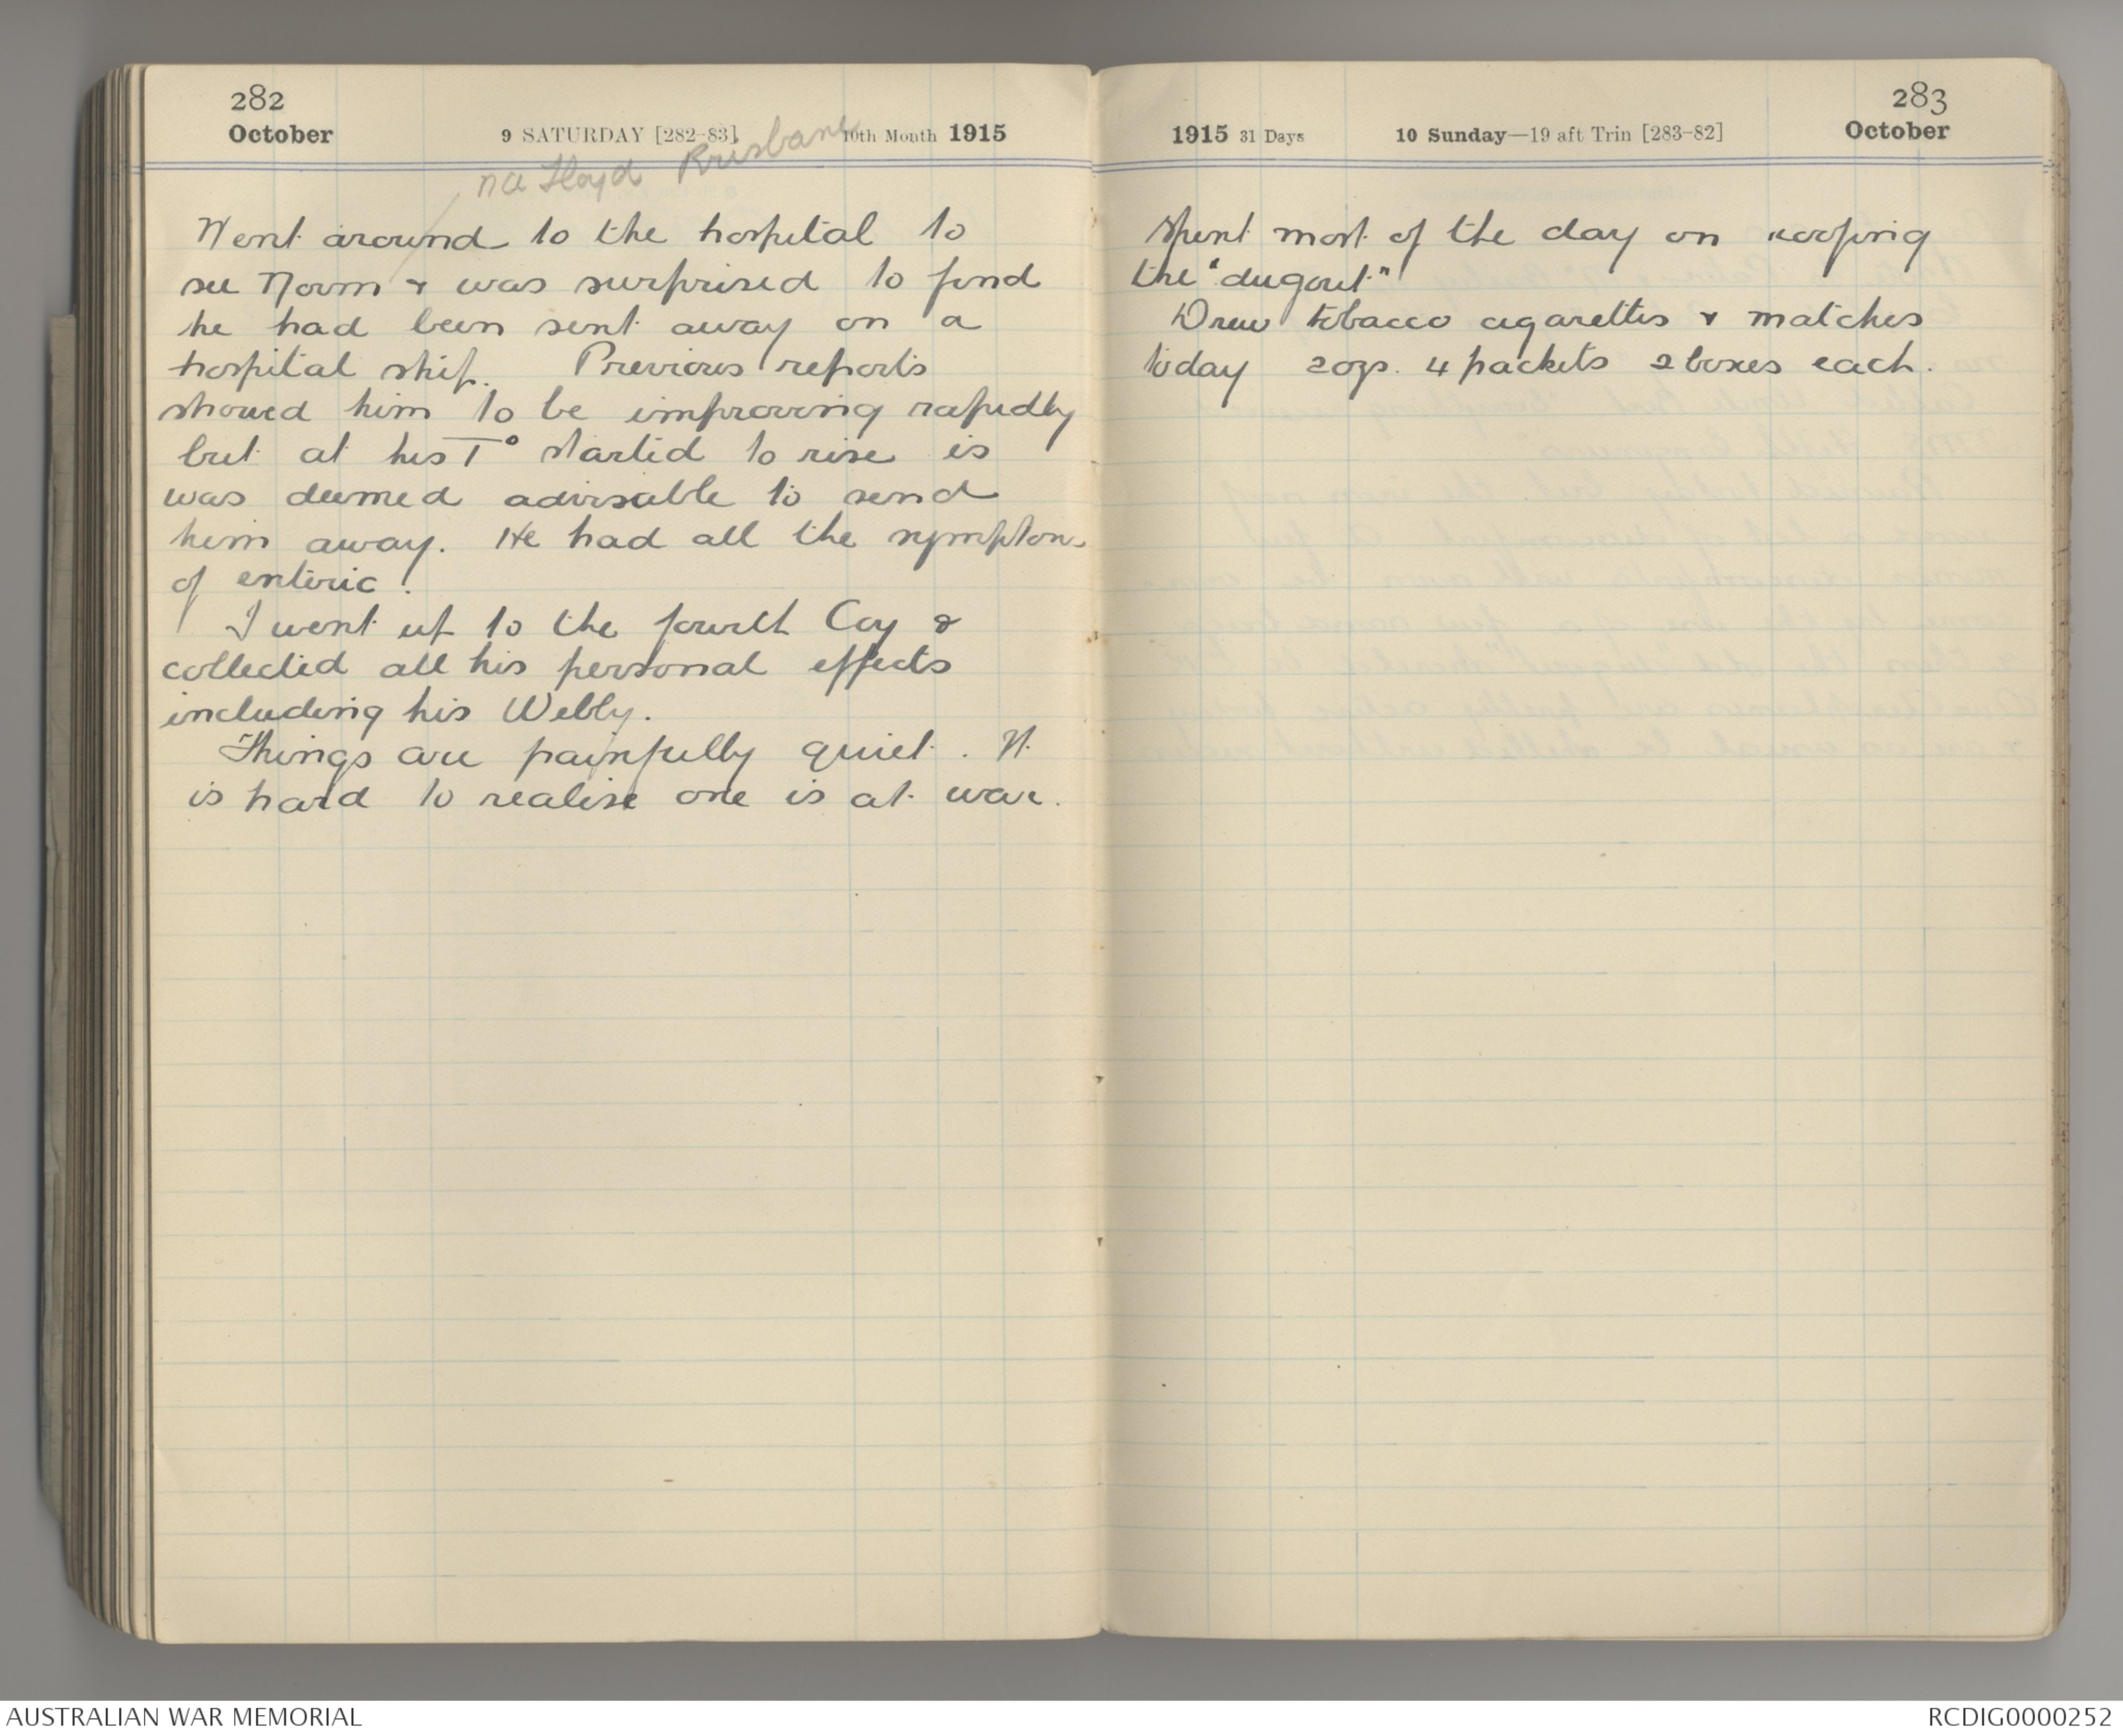 282
October 9 SATURDAY [282-83] 10th Month 1915
Lloyd Brisbane
Went around to the hospital to
see Norm & was surprised to find
he had been sent away on a
hospital ship. Previous reports
showed him to be improving rapidly
but at his T° started to rise is
was deemed advisable to send
him away. He had all the symptons
of enteric!
I went up to the fourth Coy &
collected all his personal effects
including his Webly.
Things are painfully quiet. It
is hard to realise one is at war.
283
1915 31 Days 10 Sunday—19 aft Trin [283-82] October
Spent most of the day on roofing
the "dugout"
Drew tobacco cigarettes & matches
today 2ozs. 4 packets 2 boxes each.
AUSTRALIAN WAR MEMORIAL
RCDIG0000252